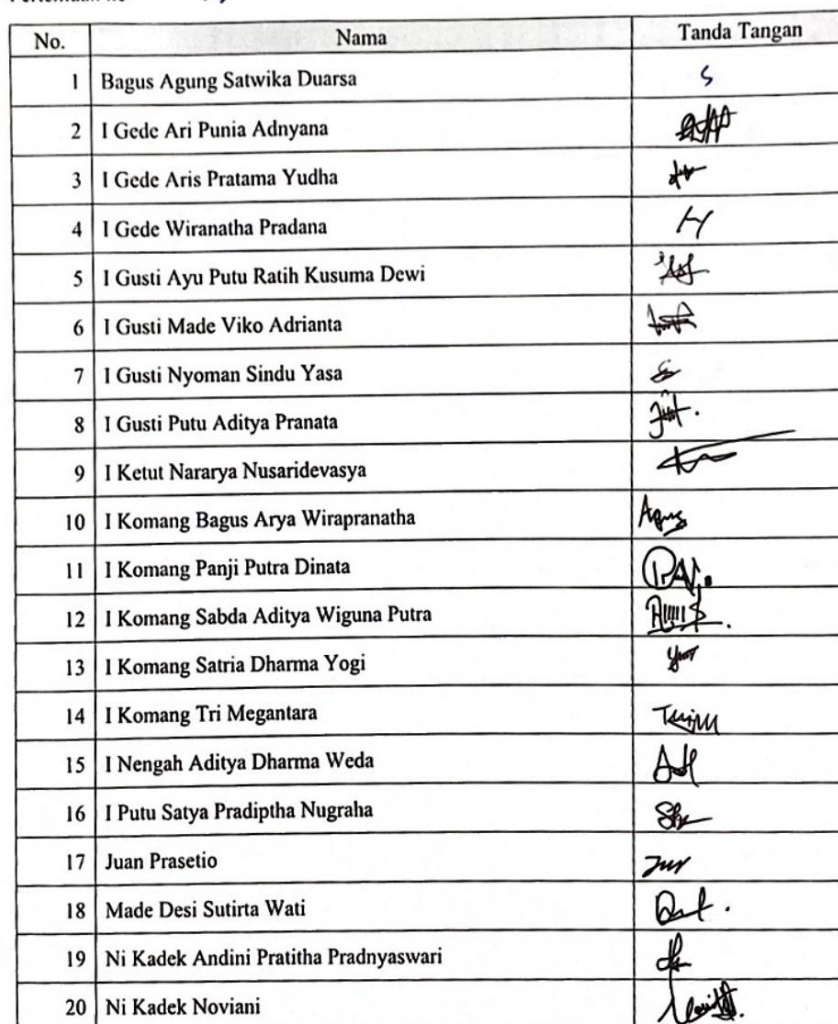 No. Nama Tanda Tangan
1 Bagus Agung Satwika Duarsa S
2 I Gede Ari Punia Adnyana
3 I Gede Aris Pratama Yudha
4 I Gede Wiranatha Pradana
5 I Gusti Ayu Putu Ratih Kusuma Dewi
6 I Gusti Made Viko Adrianta
7 I Gusti Nyoman Sindu Yasa
8 I Gusti Putu Aditya Pranata
9 I Ketut Nararya Nusaridevasya
10 I Komang Bagus Arya Wirapranatha Agus
11 I Komang Panji Putra Dinata
12 I Komang Sabda Aditya Wiguna Putra
13 I Komang Satria Dharma Yogi
14 I Komang Tri Megantara
15 I Nengah Aditya Dharma Weda
16 I Putu Satya Pradiptha Nugraha
17 Juan Prasetio
18 Made Desi Sutirta Wati
19 Ni Kadek Andini Pratitha Pradnyaswari
20 Ni Kadek Noviani